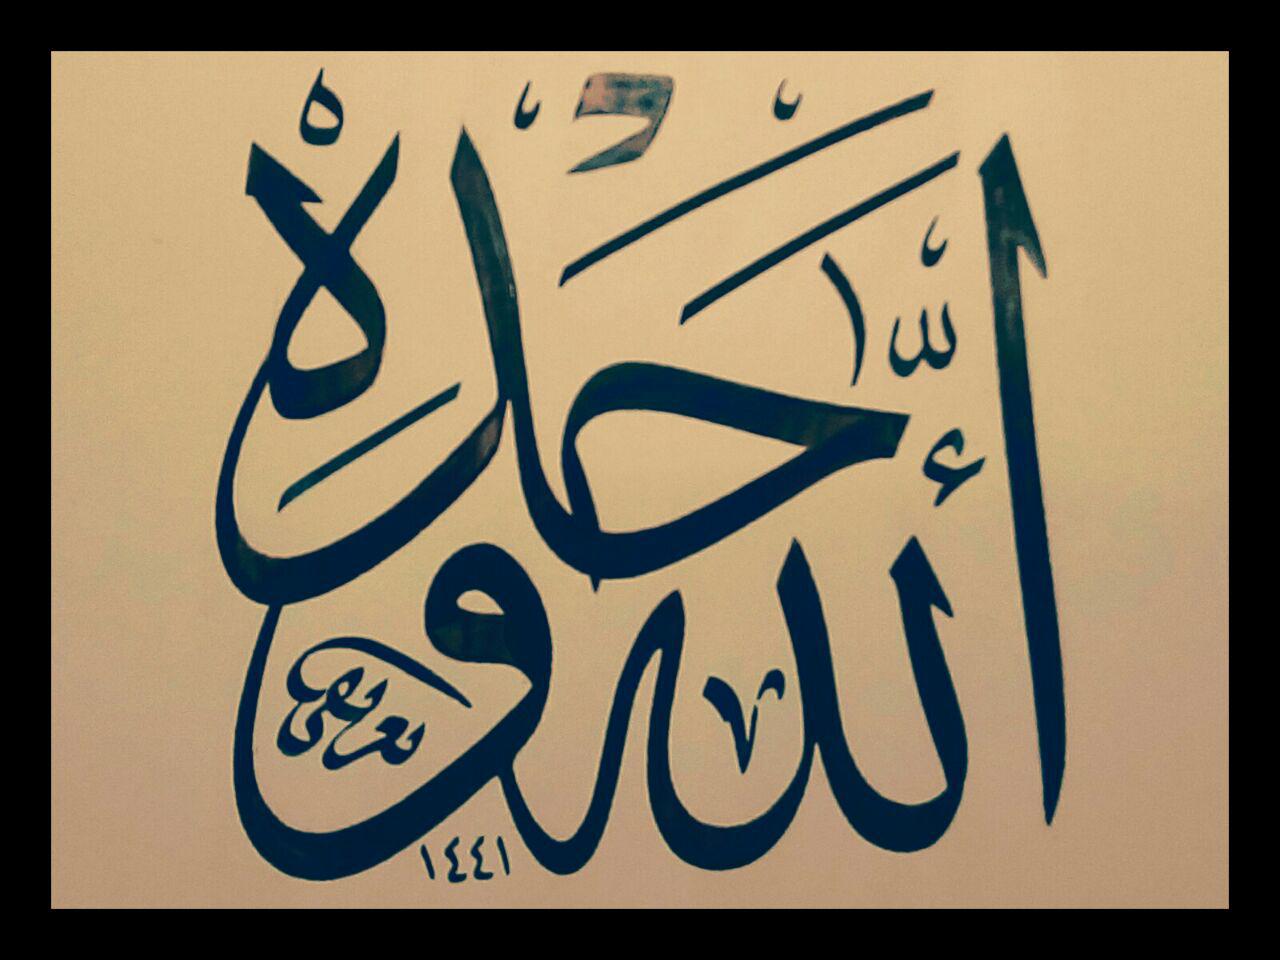 الله وحده
١٤٤١